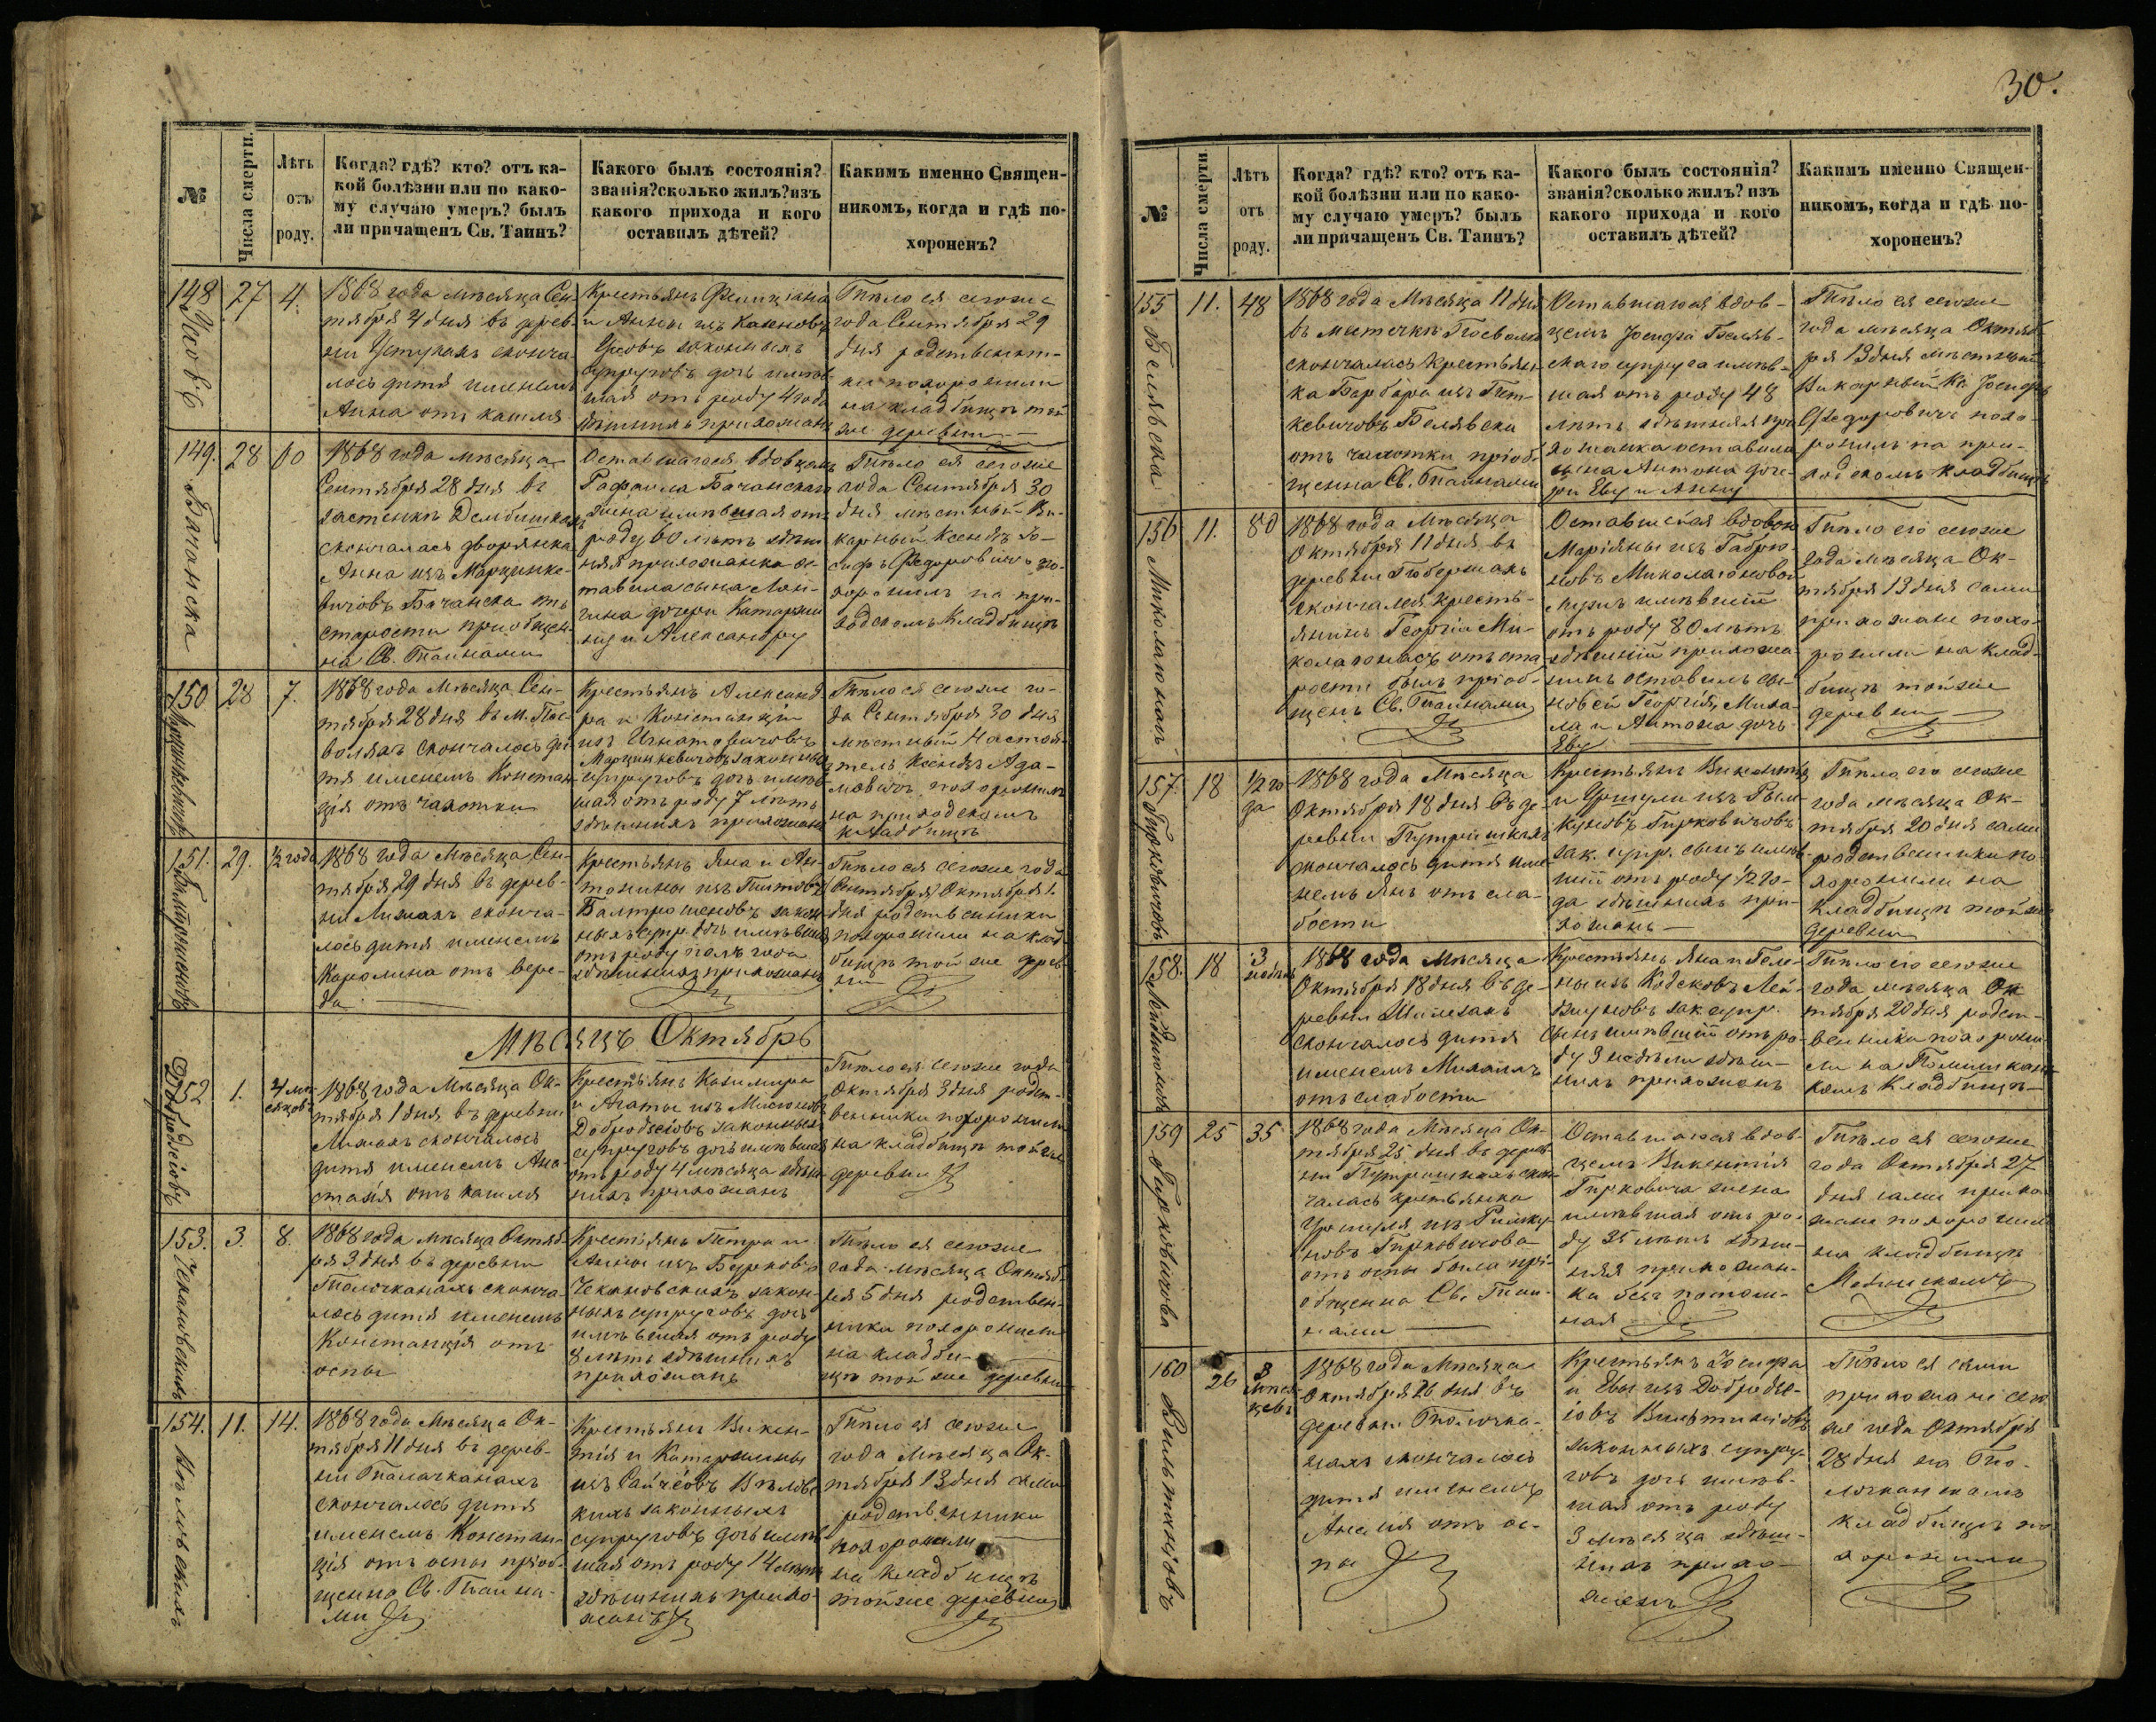 30.
№
Числа смерти.
Лѣтъ
отъ
роду.
Когда? гдѣ? кто? отъ ка-
кой болѣзни или по како-
му случаю умеръ? былъ
ли причащенъ Св. Таинъ?
Какого былъ состоянія?
званія? сколько жилъ? изъ
какого прихода и кого
оставилъ дѣтей?
Какимъ именно Священ-
никомъ, когда и гдѣ по-
хороненъ?
148
27
4.
1868 года мѣсяца Сен-
тября дня въ дерев-
ни сконча-
лось дитя именемъ
Анна отъ кашля
Крестьянъ
и Анны изъ
законныхъ
супруговъ дочь имѣв-
шая отъ роду 4 года
здѣшнихъ прихожанъ
Тѣло ея сегоже
года Сентября 29
дня родственни-
ки похоронили
на кладбищѣ той
же деревни
149.
Бачанска
28
60
1868 года мѣсяца
Сентября 28 дня въ
застенкѣ
скончалась дворянка
Анна изъ Марцинке-
вичовъ Бачанска отъ
старости приобщен-
на Св. Тайнами
Оставшагося вдовцомъ
Рафаила Бачанскаго
жена имѣвшая отъ
роду 60 лѣтъ здѣш-
няя прихожанка ос-
тавила сына Лон-
гина дочери Катаржи-
ну и Александру
Тѣло ея сегоже
года Сентября 30
дня мѣстный Ви-
карный Ксендзъ Іо-
сифъ Федоровичъ по-
хоронилъ на при-
ходскомъ кладбищѣ
150
28
7.
1868 года Мѣсяца Сен-
тября 28 дня въ м. Пос-
воляхъ скончалось ди-
тя именемъ Констан-
ція отъ чахотки
Крестьянъ Александ-
ра и Констанціи
изъ Игнатовичовъ
Марцинкевичовъ законныхъ
супруговъ дочь имѣв-
шая отъ роду 7 лѣтъ
здѣшнихъ прихожанъ
Тѣло ея сегоже го-
да Сентября 30 дня
мѣстный Настоя-
тель Ксендзъ Ада-
мовичъ похоронилъ
на приходскомъ
кладбищѣ
151.
29.
½ года
1868 года Мѣсяца Сен-
тября 29 дня въ дерев-
ни сконча-
лось дитя именемъ
Каролина отъ вере-
да
Крестьянъ Яна и Ан-
тонины изъ
закон-
ныхъ супр. дочь имѣвшая
отъ роду полъ года
здѣшнихъ прихожанъ
Тѣло ея сегоже года
(Сентября) Октября 1.
дня родственники
похоронили на клад-
бищѣ той же дерев-
ни
Мѣсяцъ Октябрь
152
1.
4 мѣ-
сяцовъ
1868 года Мѣсяца Ок-
тября 1 дня въ деревни
скончалось
дитя именемъ Ана-
стазія отъ кашля
Крестьянъ Казимира
и Агаты изъ
законныхъ
супруговъ дочь имѣвшая
отъ роду 4 мѣсяца здѣш-
нихъ прихожанъ
Тѣло ея сегоже года
Октября 3 дня родст-
венники похоронили
на кладбищѣ той же
деревни
153.
3.
8.
1868 года мѣсяца Октяб-
ря 3 дня въ деревни
сконча-
лось дитя именемъ
Констанція отъ
оспы
Крестьянъ Петра и
Анны изъ
Чехановскихъ закон-
ныхъ супруговъ дочь
имѣвшая отъ роду
8 лѣтъ здѣшнихъ
прихожанъ
Тѣло ея сегоже
года мѣсяца Октяб-
ря 5 дня родствен-
ники похоронили
на кладби-
щѣ той же деревни
154.
11.
14.
1868 года Мѣсяца Ок-
тября 11 дня въ дерев-
ни
скончалось дитя
именемъ Констан-
ція отъ оспы приоб-
щенна Св. Тайна-
ми
Крестьянъ Викен-
тія и Катаржины
изъ
законныхъ
супруговъ дочь имѣв-
шая отъ роду 14 лѣтъ
здѣшнихъ прихо-
жанъ
Тѣло ея сегоже
года Мѣсяца Ок-
тября 13 дня сами
родственники
похоронили
на кладбищѣ
той же деревни
№
Числа смерти.
Лѣтъ
отъ
роду.
Когда? гдѣ? кто? отъ ка-
кой болѣзни или по како-
му случаю умеръ? былъ
ли причащенъ Св. Таинъ?
Какого былъ состоянія?
званія? сколько жилъ? изъ
какого прихода и кого
оставилъ дѣтей?
Какимъ именно Священ-
никомъ, когда и гдѣ по-
хороненъ?
155
Белявска
11.
48
1868 года Мѣсяца 11 дня
въ мѣстечкѣ
скончалась крестьян-
ка Барбара изъ Пет-
кевичовъ Белявска
отъ чахотки приоб-
щенна Св. Тайнами
Оставшагося вдов-
цемъ Іосифа Беляв-
скаго супруга имѣв-
шая отъ роду 48
лѣтъ здѣшняя при-
хожанка оставила
сына Антона доче-
ри Еву и Анну
Тѣло ея сегоже
года мѣсяца Октяб-
ря 13 дня мѣстный
Викарный Кс. Іосифъ
Федоровичъ похо-
ронилъ на при-
ходскомъ кладбищѣ
156
11.
80
1868 года Мѣсяца
Октября 11 дня въ
деревни
скончался кресть-
янинъ Георгій Ми-
колаюнасъ отъ ста-
рости былъ приоб-
щенъ Св. Тайнами
Оставшейся вдовою
Маріянны изъ Габрю-
новъ Миколаюновой
мужъ имѣвшій
отъ роду 80 лѣтъ
здѣшній прихожа-
нинъ оставилъ сы-
новей Георгія, Миха-
ла и Антона дочь
Еву
Тѣло его сегоже
года мѣсяца Ок-
тября 13 дня сами
прихожане похо-
ронили на клад-
бищѣ той же
деревни
157.
18
½ го-
да
1868 года Мѣсяца
Октября 18 дня въ де-
ревни
скончалось дитя име-
немъ Янъ отъ сла-
бости
Крестьянъ Викентія
и Уршули изъ Рым-
куновъ Гирковичовъ
зак. супр. сынъ имѣв-
шій отъ роду ½ го-
да здѣшнихъ при-
хожанъ
Тѣло его сегоже
года мѣсяца Ок-
тября 20 дня сами
родственники по-
хоронили на
кладбищѣ той же
деревни
158.
18
3
недѣль
1868 года Мѣсяца
Октября 18 дня въ де-
ревни
скончалось дитя
именемъ Михаилъ
отъ слабости
Крестьянъ Яна и
зак. супр.
сынъ имѣвшій отъ ро-
ду 3 недѣли здѣш-
нихъ прихожанъ
Тѣло его сегоже
года мѣсяца Ок-
тября 20 дня родст-
венники похорони-
ли на
кладбищѣ
159
Гирковичова
25
35
1868 года Мѣсяца Ок-
тября 25 дня въ дерев-
ни скон-
чалась крестьянка
Уршуля изъ Рымку-
новъ Гирковичова
отъ оспы была прі-
общенна Св. Тай-
нами
Оставшагося вдов-
цемъ Викентія
Гирковича жена
имѣвшая отъ ро-
ду 35 лѣтъ здѣш-
няя прихожан-
ка безъ потом-
ная
Тѣло ея сегоже
года Октября 27
дня сами прихо-
жане похоронили
на кладбищѣ
160
26
3
мѣся-
цевъ
1868 года Мѣсяца
Октября 26 дня въ
деревни
скончалось
дитя именемъ
Анеля отъ ос-
пы
Крестьянъ Іосифа
и Евы изъ
законныхъ супру-
говъ дочь имѣв-
шая отъ роду
3 мѣсяца здѣш-
нихъ прихо-
жанъ
Тѣло ея сами
прихожане сего
же года Октября
28 дня на
кладбищѣ по-
хоронили